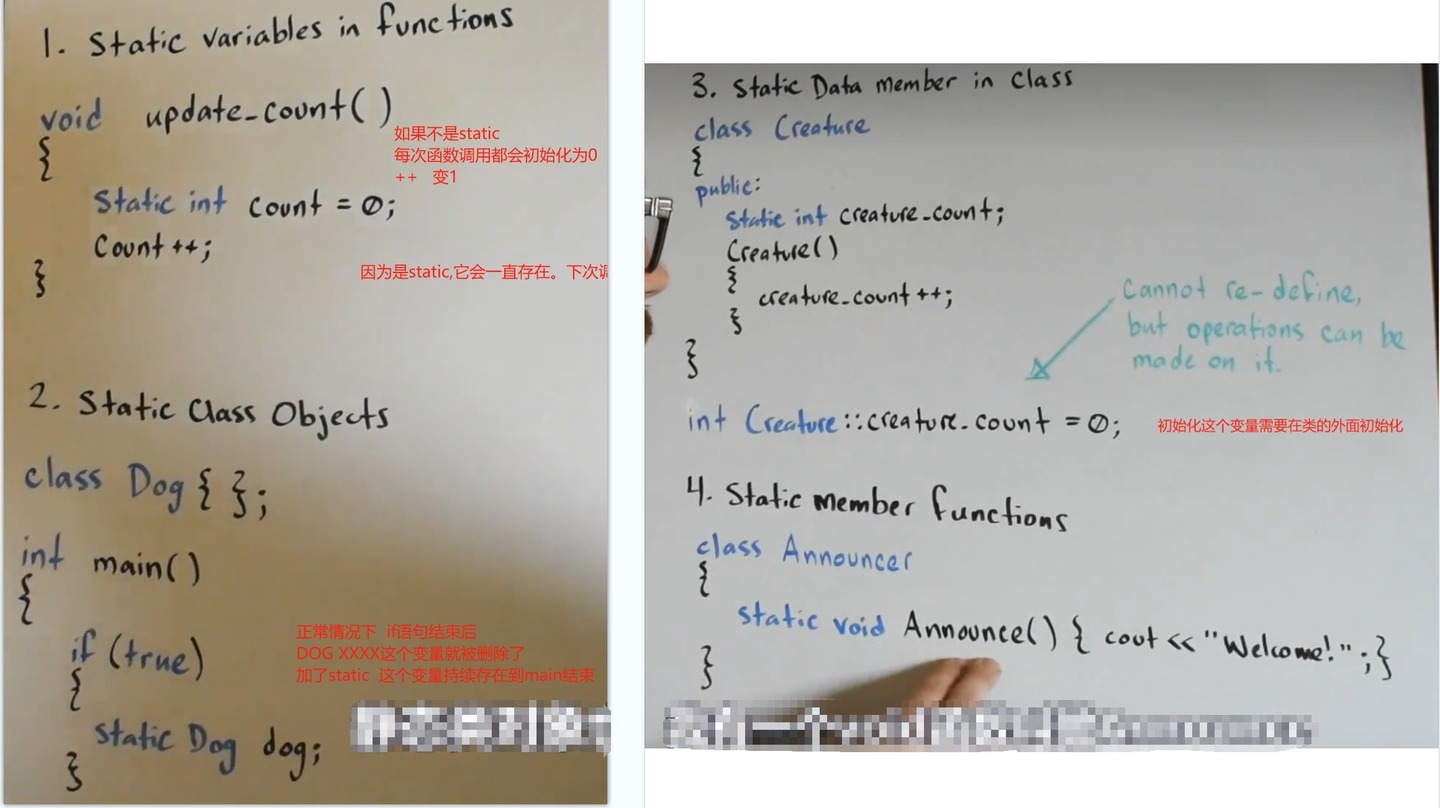 1. Static variables in functions
void update_count()
{
如果不是static
每次函数调用都会初始化为0
++ 变1
static int count = 0;
Count++;
}
因为是static,它会一直存在。下次
2. Static Class Objects
class Dog { };
int main()
{
正常情况下 if语句结束后
DOG XXXX这个变量就被删除了
加了static 这个变量持续存在到main结束
if (true)
{
static Dog dog;
}
3. Static Data member in class
class Creature
{
public:
static int creature_count;
Creature()
{
creature_count++;
}
}
Cannot re-define,
but operations can be
made on it.
int Creature::creature_count = 0;
初始化这个变量需要在类的外面初始化
4. Static member functions
class Announcer
{
static void Announce() { cout << "Welcome!" ;}
}